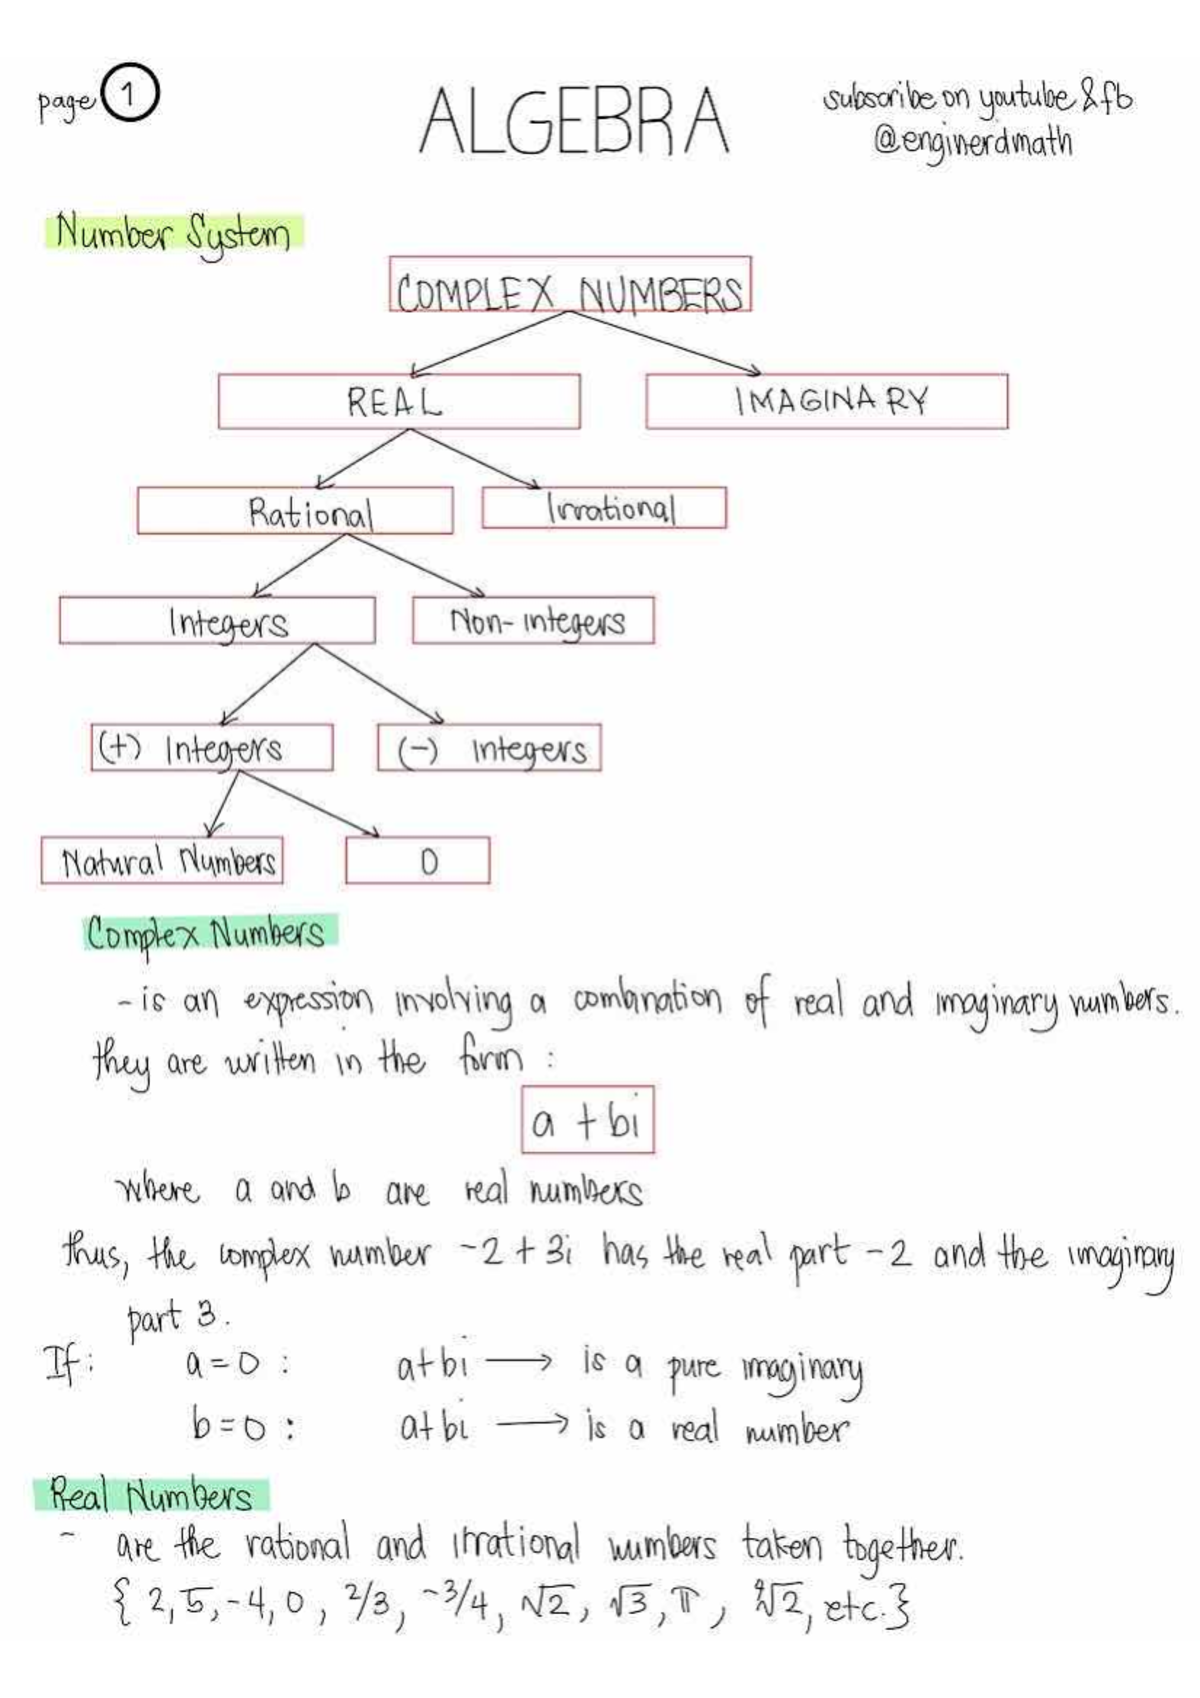 page 1
ALGEBRA
subscribe on youtube & fb
@enginerdmath
Number System
COMPLEX NUMBERS
REAL
IMAGINARY
Rational
Irrational
Integers
Non-integers
(+) Integers
(-) Integers
Natural Numbers
0
Complex Numbers
- is an expression involving a combination of real and imaginary numbers.
they are written in the form :
a + bi
where a and b are real numbers
thus, the complex number -2 + 3i has the real part -2 and the imaginary
part 3.
If: a = 0 : a+bi → is a pure imaginary
b = 0 : a+bi → is a real number
Real Numbers
- are the rational and irrational numbers taken together.
{ 2, 5, -4, 0, 2/3, -3/4, √2, √3, π, ∜2, etc. }